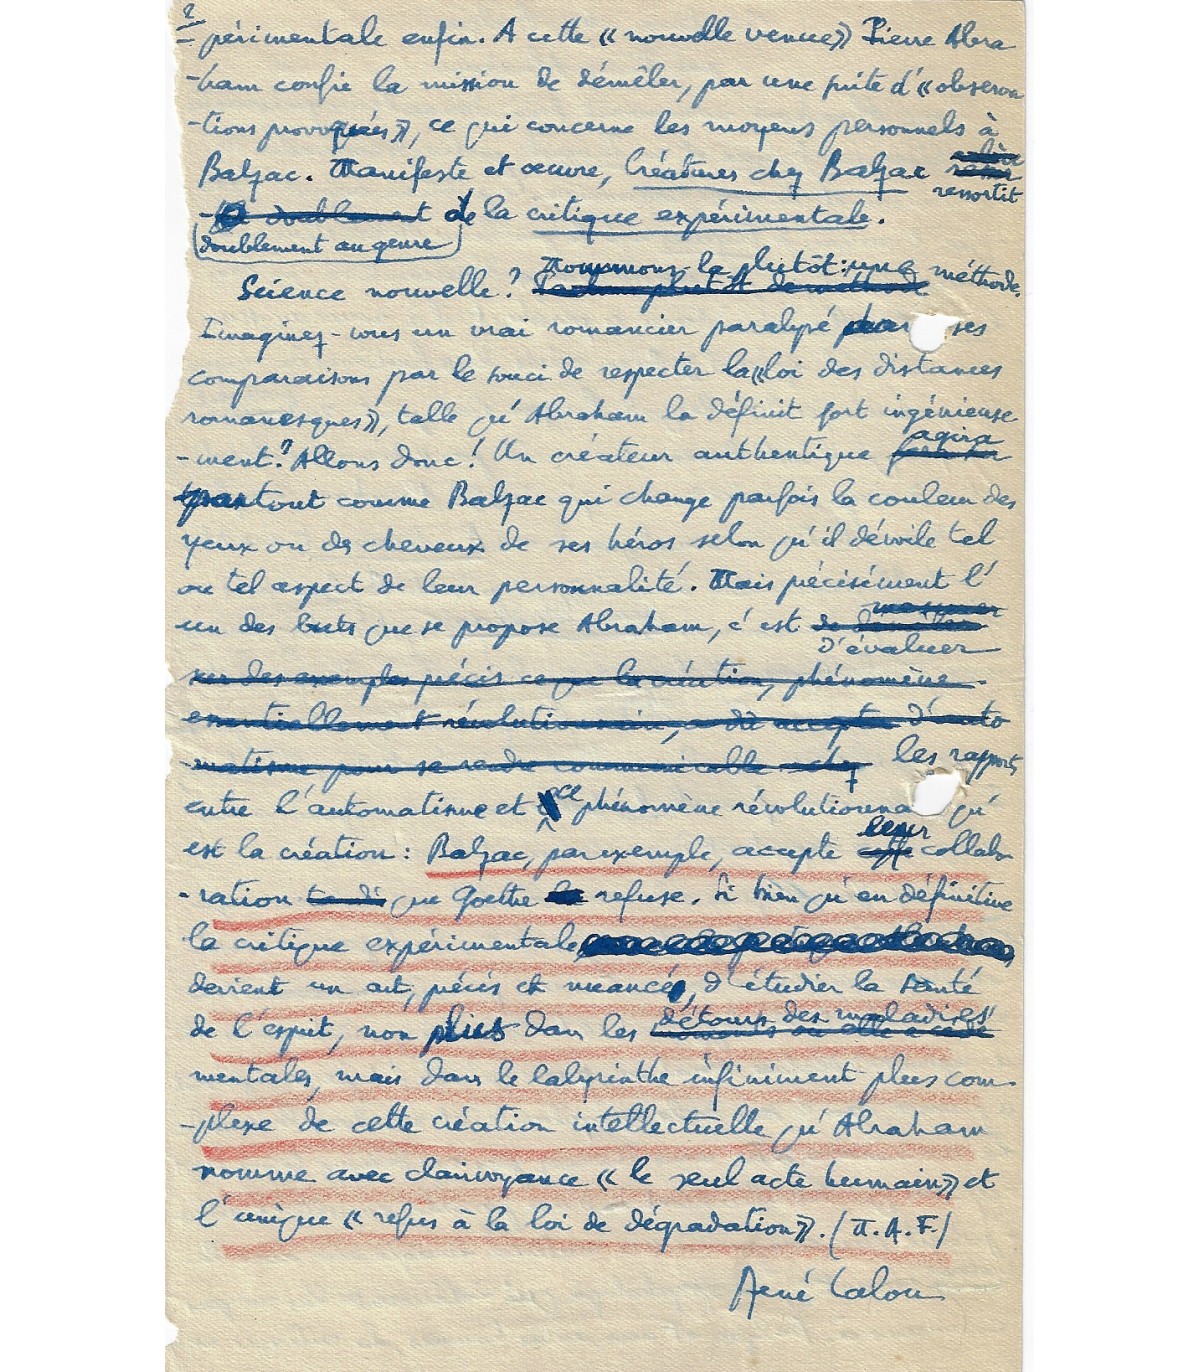 2
-périmentale enfin. A cette « nouvelle venue » Pierre Abra
-ham confie la mission de démêler, par une suite d'« observa
-tions provoquées », ce qui concerne les moyens personnels à
Balzac. Manifeste et œuvre, Créatures chez Balzac
ressortit
doublement de la critique expérimentale.
doublement au genre
nommons-la plutôt : une méthode.
Science nouvelle?
Imaginez-vous un vrai romancier paralysé ses
comparaisons par le souci de respecter la « loi des distances
romanesques », telle qu'Abraham la définit fort ingénieuse
-ment? Allons donc! Un créateur authentique
agira
partout comme Balzac qui change parfois la couleur des
yeux ou des cheveux de ses héros selon qu'il dévoile tel
ou tel aspect de leur personnalité. Mais précisément l'
un des buts que se propose Abraham, c'est
mesurer
d'évaluer
sur des exemples précis ce que la création, phénomène
essentiellement révolutionnaire, a dû accepter d'auto
-matisme pour se rendre communicable chez
les rapports
entre l'automatisme et ce phénomène révolutionna qu'
est la création : Balzac, par exemple, accepte leur collabo
-ration que Goethe refuse. Si bien qu'en définitive
la critique expérimentale
devient un art, précis et nuancé, d'étudier la santé
de l'esprit, non plus dans les détours des maladies
mentales, mais dans le labyrinthe infiniment plus com-
-plexe de cette création intellectuelle qu'Abraham
nomme avec clairvoyance « le seul acte humain » et
l'unique « refus à la loi de dégradation ». (N.R.F.)
René Lalou